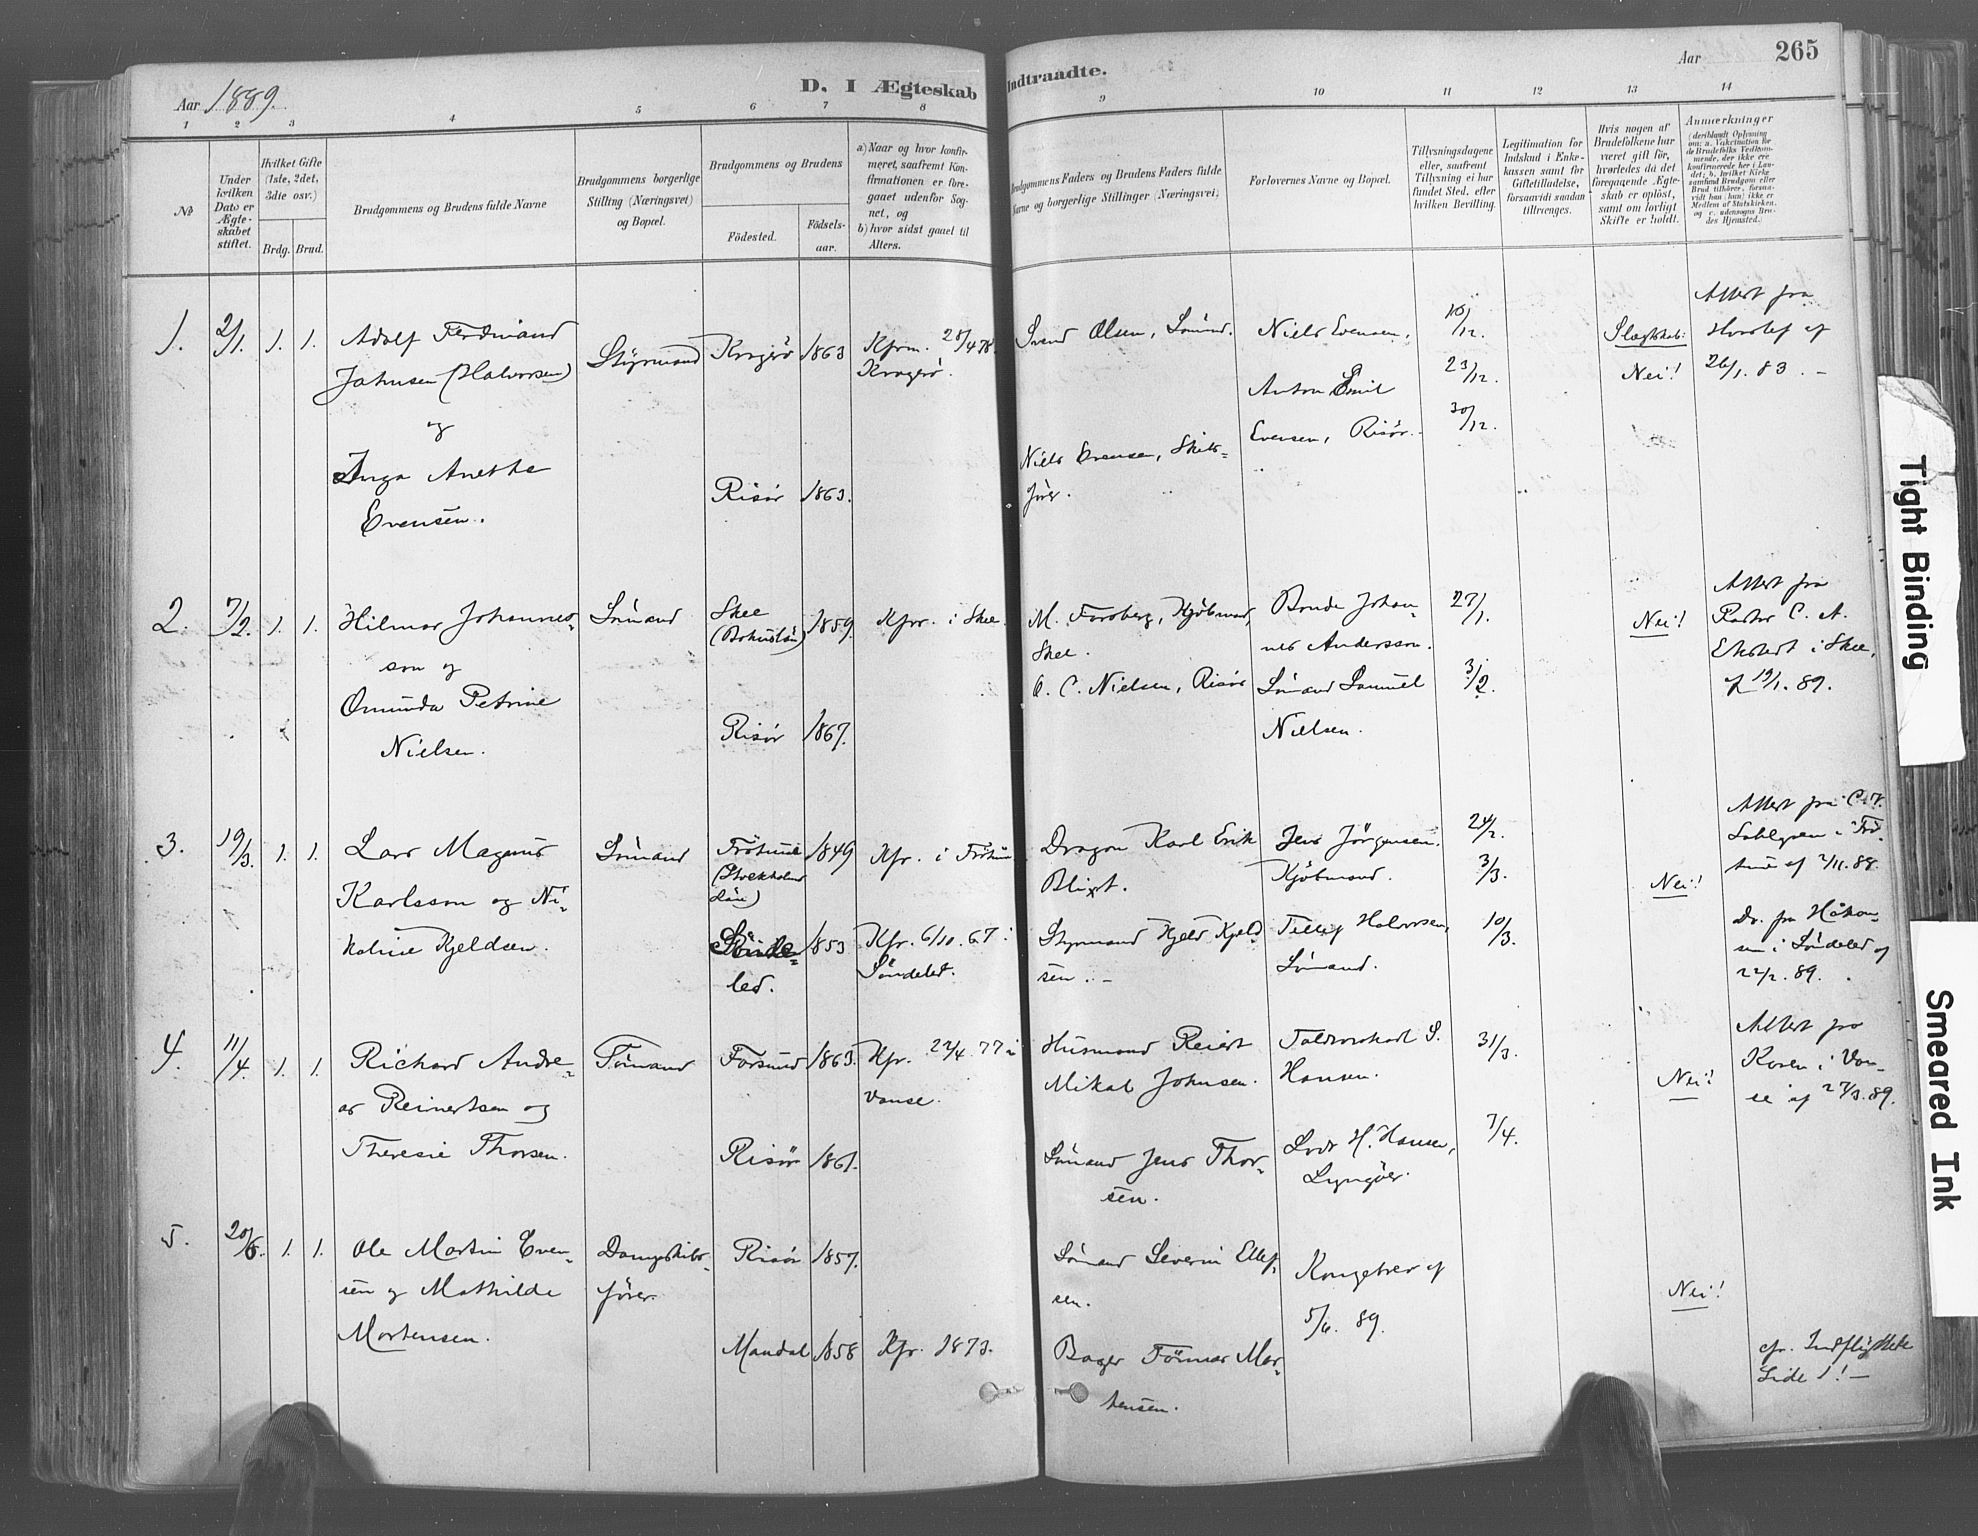 265
Aar 1889.
D. I Ægteskab Indtraadte.
Aar
1 2 3 4 5 6 7 8 9 10 11 12 13 14
No
Under hvilken Dato er Ægteskabet stiftet.
Hvilket Gifte (1ste, 2det, 3die osv.)
Brdg. Brud.
Brudgommens og Brudens fulde Navne
Brudgommens borgerlige Stilling (Næringsvei) og Bopæl.
Brudgommens og Brudens
Födested.
Födsels-aar.
a) Naar og hvor konfirmeret, saafremt Konfirmationen er foregaaet udenfor Sognet, og
b) hvor sidst gaaet til Alters.
Brudgommens Faders og Brudens Faders fulde Navne og borgerlige Stillinger (Næringsvei)
Forlovernes Navne og Bopæl.
Tillysningsdagene eller, saafremt Tillysning ei har fundet Sted, efter hvilken Bevilling.
Legitimation for Indskud i Enkekassen samt for Giftetilladelse, forsaavidt saadan tiltrænges.
Hvis nogen af Brudefolkene har været gift för, hvorledes da det foregaaende Ægteskab er oplöst, samt om lovligt Skifte er holdt.
Anmærkninger
(deriblandt Oplysning om: a. Vakcination for de Brudefolks Vedkommende, der ikke ere konfirmerede her i Landet; b. hvilket Kirkesamfund Brudgom eller Brud tilhörer, forsaavidt han (hun) ikke er Medlem af Statskirken, og c. udensogns Brudes Hjemsted.)
1. 2/1. 1. 1.
Adolf Ferdinand
Johnsen (Halvorsen)
og
Inga Anethe
Evensen.
Styrmand
Kragerö 1863
Risör 1863.
Kfrm. 28/4 78.
Kragerö.
Svend Olsen, Sömd.
Niels Evensen, Skibs-
förer.
Niels Evensen,
Anton Emil
Evensen, Risör.
16/12.
23/12.
30/12.
Slægtskab:
Nei!
Attest fra
26/1. 83. -
2. 7/2. 1. 1.
Hilmar Johannes-
son og
Omunda Petrine
Nielsen.
Sömand
Skee
(Bohuslän) 1859.
Risör 1867.
Kfr. i Skee.
M. Forsberg, Kjöbmand,
Skee.
O. C. Nielsen, Risör
Bonde Johan-
nes Andersson.
Sömand Samuel
Nielsen.
27/1.
3/2.
Nei!
Attest fra
Pastor C. A.
Ekstedt i Skee,
af 19/1. 89.
3. 19/3. 1. 1.
Lars Magnus
Karlsson og Ni-
koline Kjeldsen.
Sömand
Frötuna 1849
(Stockholms
Län)
Sönde- 1853
led.
Kfr. i Frötuna
Kfr. 6/10. 67 i
Söndeled.
Dragon Karl Erik
Blixt.
Styrmand Kjeld Kjeld-
sen. -
Jens Jörgensen.
Kjöbmand.
Tellef Halvorsen,
Sömand.
24/2.
3/3.
10/3.
Nei!
Attest fra
Sahlgren i Frö-
tuna af 2/11. 88.
Do. fra Håkon-
sen i Söndeled af
22/2. 89.
4. 11/4. 1. 1.
Richard Andre-
as Reinertsen og
Theresie Thorsen.
Tömand
Farsund 1863.
Risör 1861.
Kfr. 22/4. 77 i
Vanse.
Husmand Reiert
Mikal Johnsen.
Sömand Jens Thor-
sen.
Toldvagtkarl S.
Hansen.
Lods H. Hansen,
Lyngöer.
31/3.
7/4.
Nei!
Attest fra
Koren i Van-
se af 27/3. 89.
5. 20/6. 1. 1.
Ole Martin Even-
sen og Mathilde
Mortensen.
Dampskibs-
förer.
Risör 1857.
Mandal 1858
Kfr. 1873.
Sömand Severin Ellef-
sen.
Bager Tönnes Mor-
tensen.
Kongebrev af
5/6. 89.
Nei!
cfr. Indflyttede
Side 1! -
Tight Binding
Smeared Ink